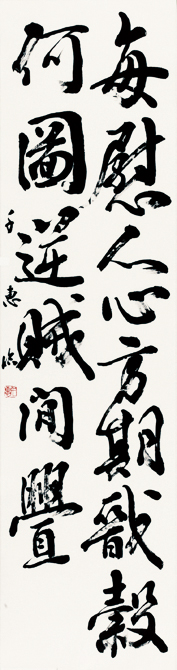 每慰人心方期戩穀
何圖逆賊間舋
千惠臨